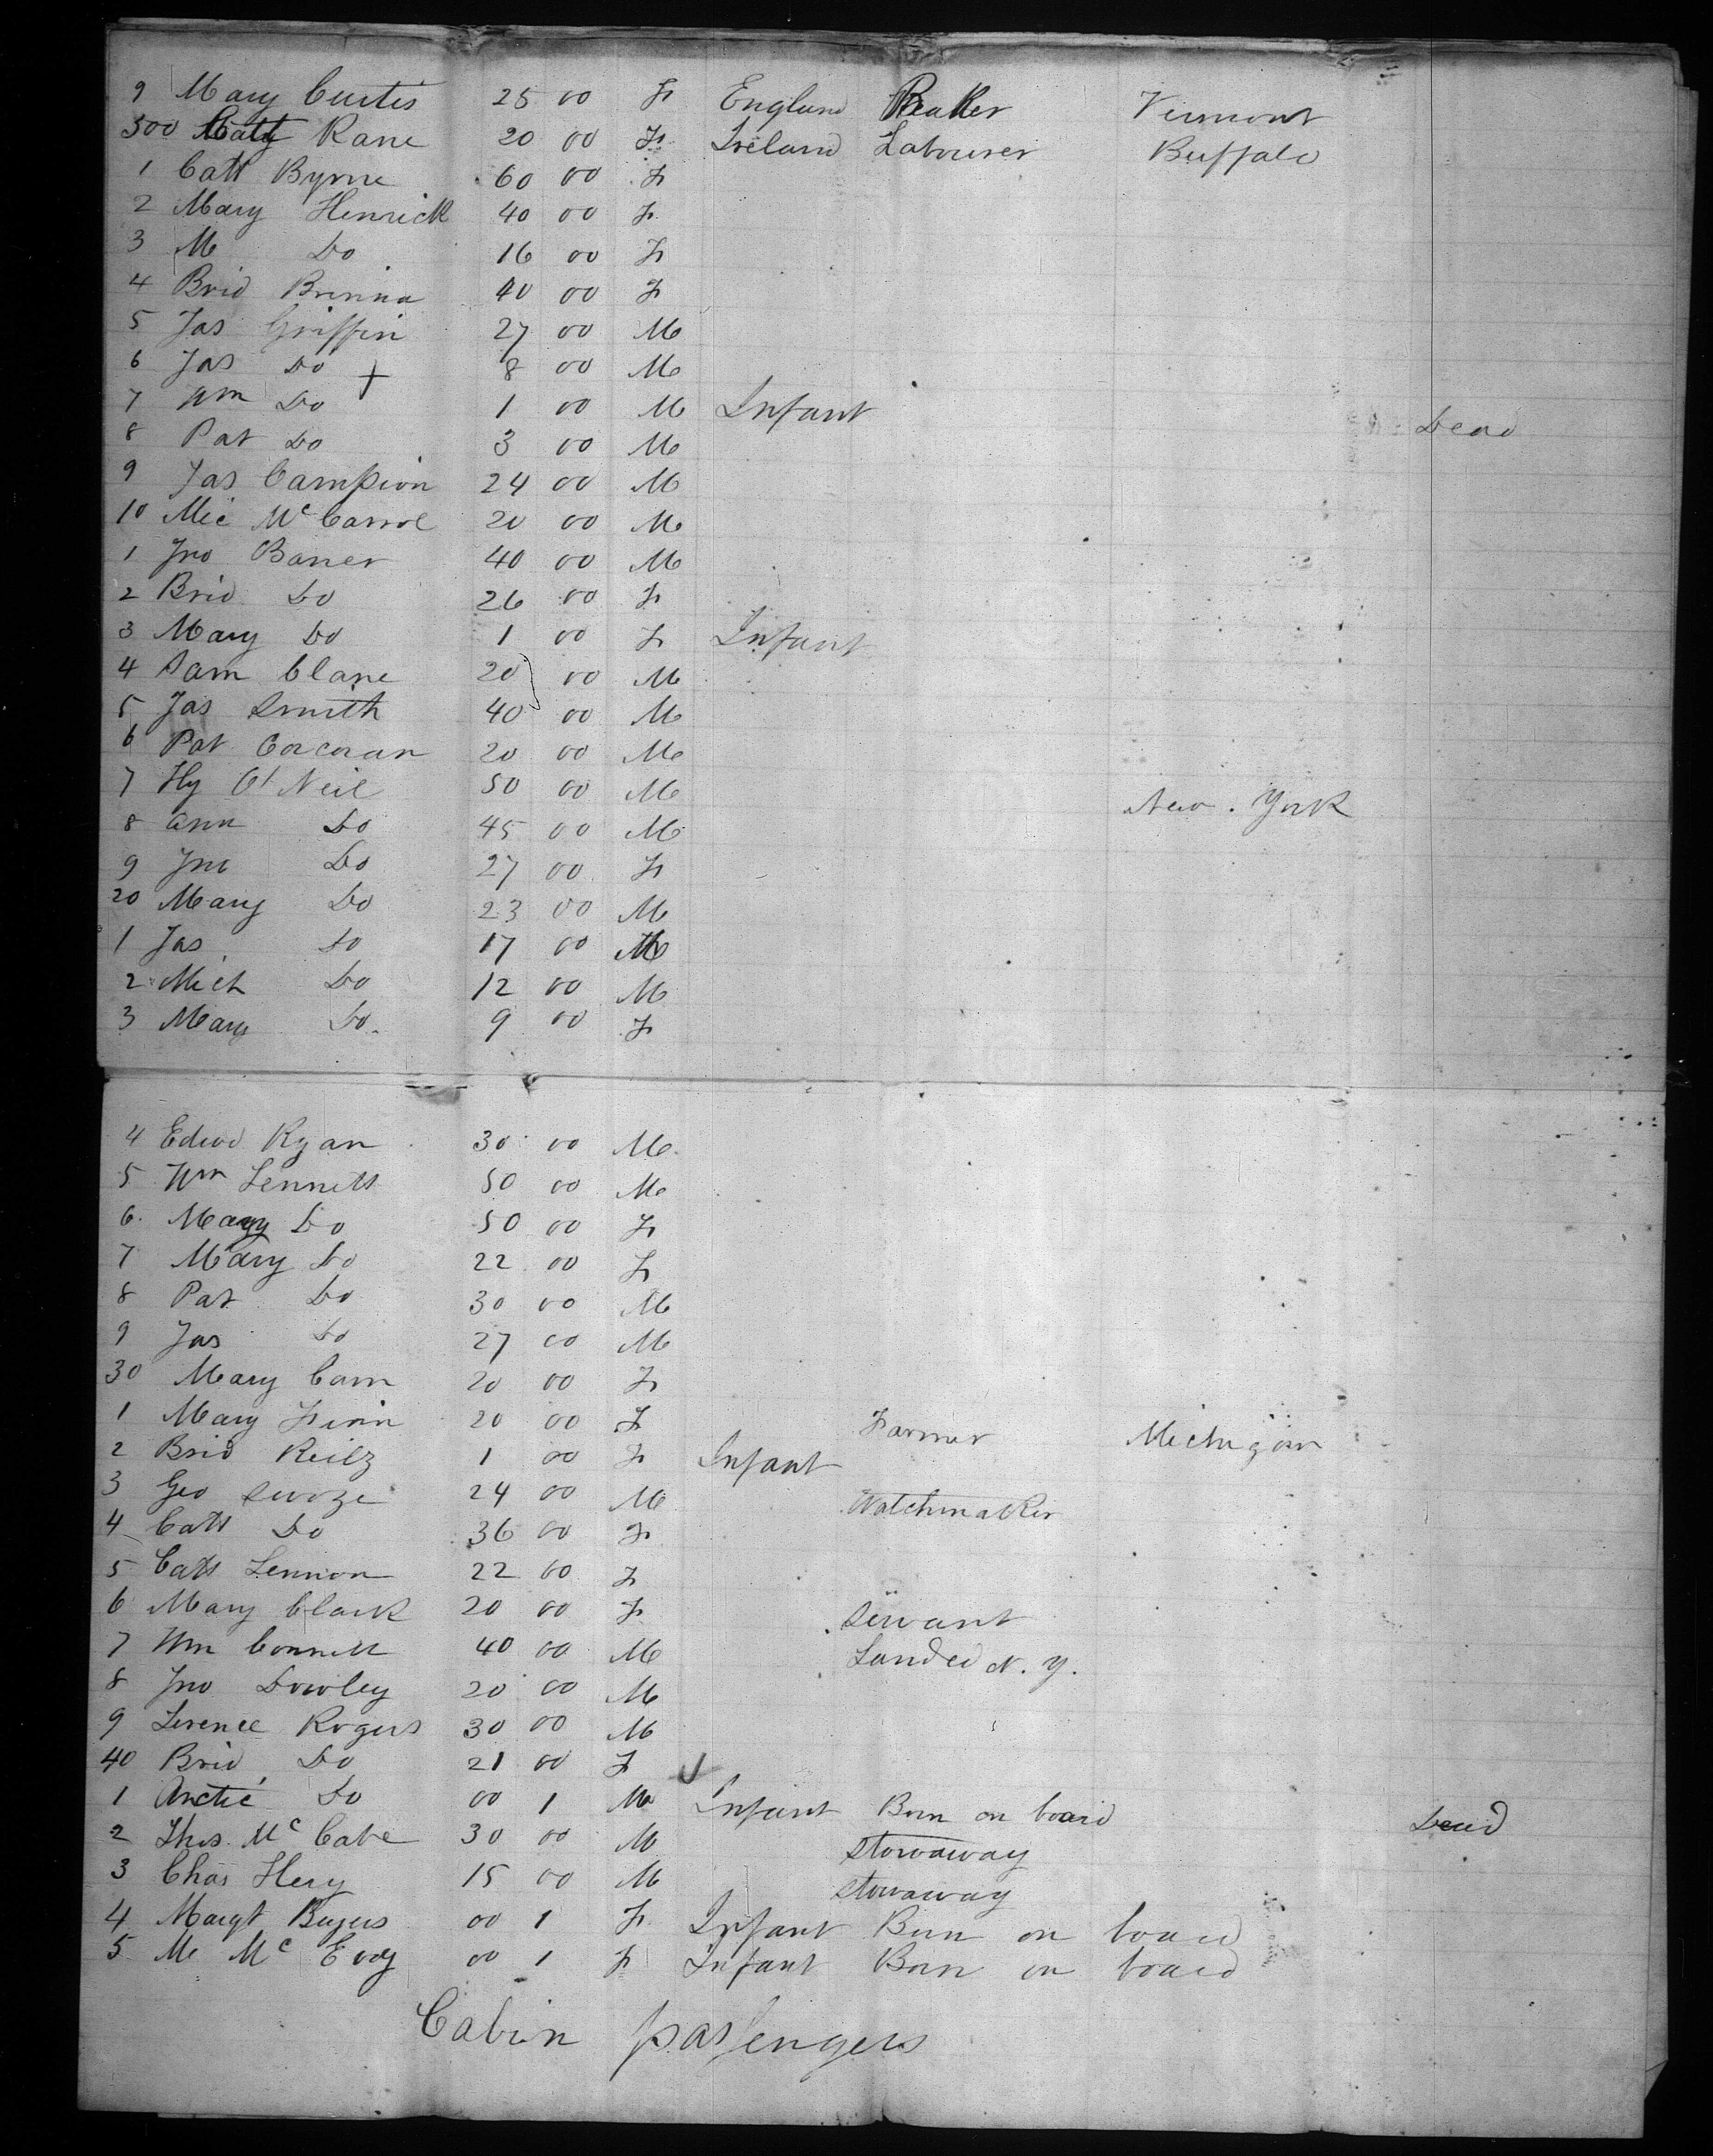 9 Mary Curtis 25 00 F England Vermont
500 Cath Kane 20 00 F Ireland Labourer Buffalo
1 Cath Byrne 60 00 F
2 Mary Henrick 40 00 F
3 M Do 16 00 F
4 Brid 40 00 F
5 Jas Griffin 27 00 M
6 Jas Do 8 00 M
7 Wm Do 1 00 M Infant Dead
8 Pat Do 3 00 M
9 Jas Campion 24 00 M
10 Mic McCarrol 20 00 M
1 Jno Barrer 40 00 M
2 Brid Do 26 00 F
3 Mary Do 1 00 F Infant
4 Sam Clane 20 00 M
5 Jas Smith 40 00 M
6 Pat Corcoran 20 00 M
7 Hy O'Neil 50 00 M New York
8 Ann Do 45 00 M
9 Jno Do 27 00 F
20 Mary Do 23 00 M
1 Jas Do 17 00 M
2 Mich Do 12 00 M
3 Mary Do 9 00 F
4 Edwd Ryan 30 00 M
5 Wm Sennett 50 00 M
6 Mary Do 50 00 F
7 Mary Do 22 00 F
8 Pat Do 30 00 M
9 Jas Do 27 00 M
30 Mary Carn 20 00 F
1 Mary Finn 20 00 F Farmer Michigan
2 Brid Reily 1 00 F Infant
3 Geo 24 00 M Watchmaker
4 Cath Do 36 00 F
5 Cath Lennon 22 00 F
6 Mary Clark 20 00 F Servant
7 Wm Connell 40 00 M Landed N.Y.
8 Jno Dowley 20 00 M
9 Terence Rogers 30 00 M
40 Brid Do 21 00 F
1 Arctic Do 00 1 M Infant Born on board Dead
2 Thos. McCabe 30 00 M Stowaway
3 Chas Hery 15 00 M Stowaway
4 Margt 00 1 F Infant Born on board
5 M McEvoy 00 1 F Infant Born on board
Cabin passengers